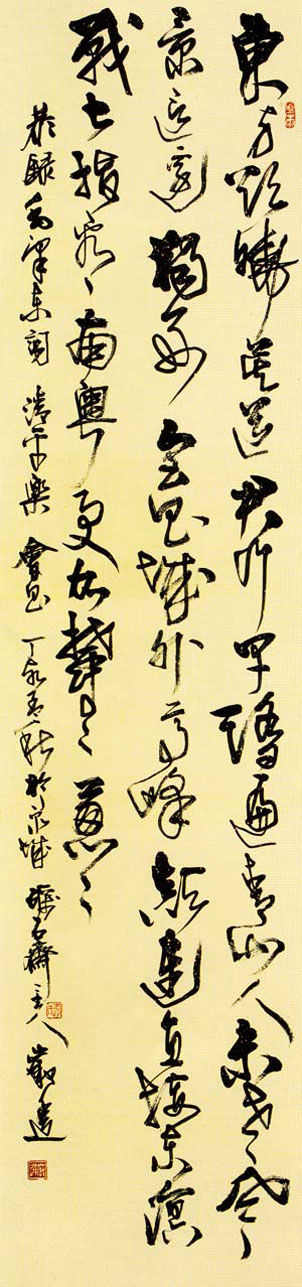 東方欲曉莫道君行早踏遍青山人未老風
景這邊獨好會昌城外高峰顛連直接東溟
戰士指看南粵更加鬱〻蔥〻
恭錄毛澤東詞 清平樂 會昌 丁亥孟秋於泉城 石齋主人